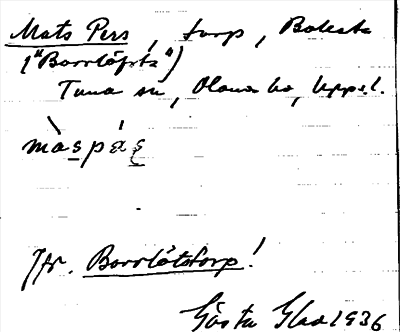 Mats Pers, torp, Bolsta
("Borrlöfsta")
Tuna sn, Olands hd, Uppsl.
màspás
Jfr. Borrlötstorp!
Gösta Glad 1936